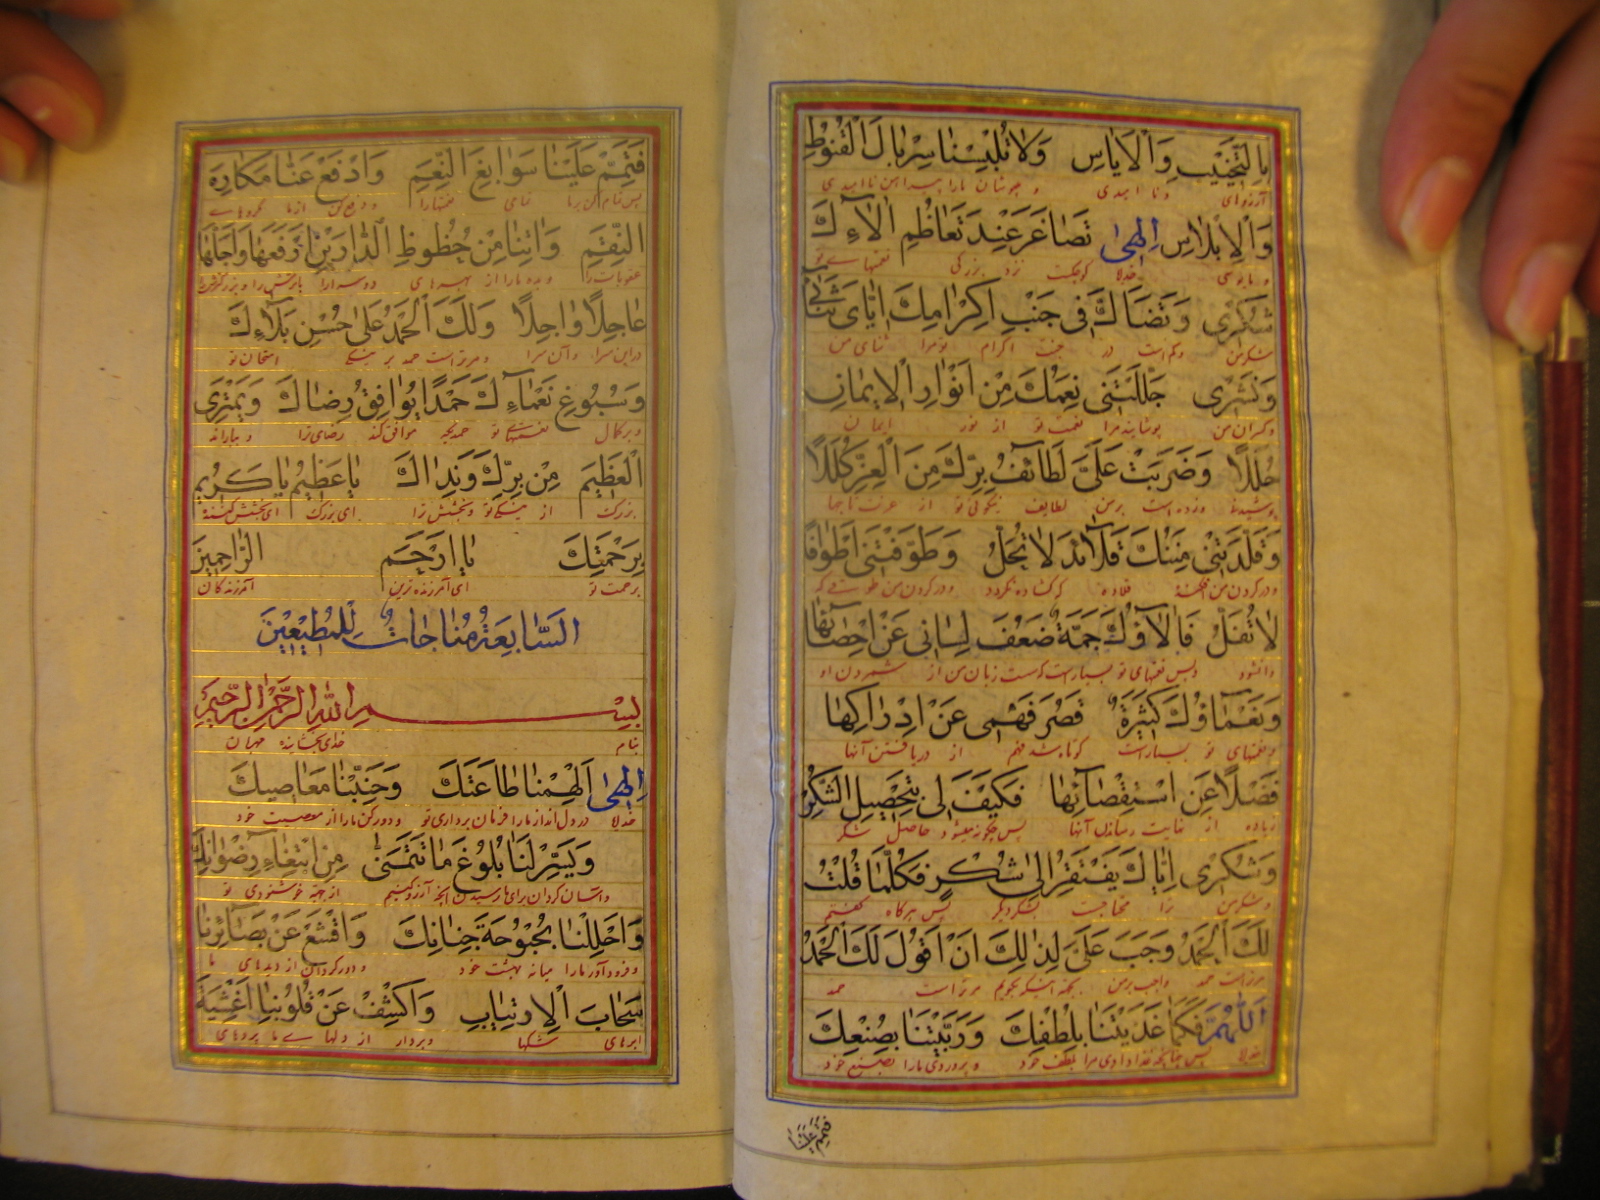 بِالتَّخْيِيبِ وَالْاِيَاسِ وَلَا تُلْبِسْنَا سِرْبَالَ الْقُنُوطِ
آرزوای و نا امیدی و مپوشان ما را پیراهن نا امیدی
وَالْاِبْلَاسِ اِلٰهِى تَصَاغَرَ عِنْدَ تَعَاظُمِ اٰلَآءِكَ
و مایوسی خدایا کوچکست نزد بزرگی نعمتهای تو
شُكْرِى وَتَضَآءَلَ فِى جَنْبِ اِكْرَامِكَ اِيَّاىَ ثَنَآئِى
شکر من و کم است در جنب اکرام تو مرا ثنای من
وَنَشْرِى جَلَّلَتْنِى نِعَمُكَ مِنْ اَنْوَارِ الْاِيمَانِ
پوشانیده مرا نعمت تو از نور ایمان
حُلَلًا وَضَرَبَتْ عَلَىَّ لَطَائِفُ بِرِّكَ مِنَ الْعِزِّ كِلَلًا
و زده است بر من لطایف نیکوئی تو از عزت
وَقَلَّدَتْنِى مِنَنُكَ قَلَآئِدَ لَا تُحَلُّ وَطَوَّقَتْنِى اَطْوَاقًا
و در گردن من قلاده که گشاده نگردد و در گردن من
لَا تُفَلُّ فَاٰلَآؤُكَ جَمَّةٌ ضَعُفَ لِسَانِى عَنْ اِحْصَآئِهَا
پس نعمتهای تو بسیار است سست زبان من از شمردن او
وَنَعْمَاؤُكَ كَثِيرَةٌ قَصُرَ فَهْمِى عَنْ اِدْرَاكِهَا
و نعمتهای تو بسیار است کوتاه شد فهم از دریافتن آنها
فَضْلًا عَنِ اسْتِقْصَآئِهَا فَكَيْفَ لِى بِتَحْصِيلِ الشُّكْرِ
زیاده از غایت رسانیدن آنها پس چگونه میشود حاصل شکر
وَشُكْرِى اِيَّاكَ يَفْتَقِرُ اِلٰى شُكْرٍ فَكُلَّمَا قُلْتُ
و شکر من ترا محتاجست بشکر دیگر پس هرگاه گفتم
لَكَ الْحَمْدُ وَجَبَ عَلَىَّ لِذٰلِكَ اَنْ اَقُولَ لَكَ الْحَمْدُ
مر تراست حمد واجب بر من بجهة اینکه بگویم مر تراست حمد
اَللّٰهُمَّ فَكَمَا غَذَّيْتَنَا بِلُطْفِكَ وَرَبَّيْتَنَا بِصُنْعِكَ
خدایا پس چنانچه غذا دادی مرا بلطف خود و پروردی ما را بصنع خود
فَتَمِّمْ عَلَيْنَا
فَتَمِّمْ عَلَيْنَا سَوَابِغَ النِّعَمِ وَادْفَعْ عَنَّا مَكَارِهَ
پس تمام کن بر ما نعمتها را و دفع کن از ما
النِّقَمِ وَاٰتِنَا مِنْ حُظُوظِ الدَّارَيْنِ اَرْفَعَهَا وَاَجَلَّهَا
عقوبات را و بده ما را از بهره های دو سرا
عَاجِلًا وَاٰجِلًا وَلَكَ الْحَمْدُ عَلٰى حُسْنِ بَلَآءِكَ
در این سرا و آن سرا و مر تراست حمد بر نیکی امتحان تو
وَسُبُوغِ نَعْمَآءِكَ حَمْدًا يُوَافِقُ رِضَاكَ وَيَمْتَرِى
و بر کمال نعمتهای تو حمدیکه موافق کند رضای ترا
الْعَظِيمَ مِنْ بِرِّكَ وَنَدَاكَ يَا عَظِيمُ يَا كَرِيمُ
بزرگ از نیکی تو و بخشش ترا ای بزرگ ای بخشش کننده
بِرَحْمَتِكَ يَا اَرْحَمَ الرَّاحِمِينَ
برحمت تو ای آمرزنده ترین آمرزندگان
اَلسَّابِعَةُ مُنَاجَاتُ لِلْمُطِيعِينَ
بِسْمِ اللّٰهِ الرَّحْمٰنِ الرَّحِيمِ
بنام خدای بخشاینده مهربان
اِلٰهِى اَلْهِمْنَا طَاعَتَكَ وَجَنِّبْنَا مَعَاصِيَكَ
خدایا در دل انداز ما را فرمان برداری تو و دور کن ما را از معصیت خود
وَيَسِّرْ لَنَا بُلُوغَ مَا نَتَمَنّٰى مِنِ ابْتِغَآءِ رِضْوَانِكَ
و آسان گردان برای ما رسیدن آنچه آرزو کنیم از جهة خوشنودی تو
وَاَحْلِلْنَا بُحْبُوحَةَ جِنَانِكَ وَاقْشَعْ عَنْ بَصَائِرِنَا
و فرود آور ما را میانه بهشت خود و دور گردان از دیدهای ما
سَحَابَ الْاِرْتِيَابِ وَاكْشِفْ عَنْ قُلُوبِنَا اَغْشِيَةَ
ابرهای شکها و بردار از دلهای ما پردهای